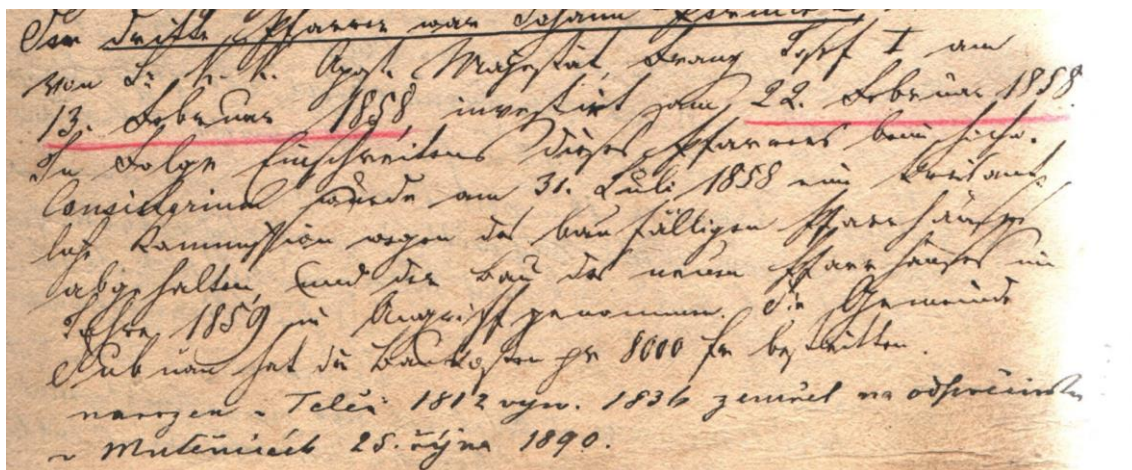 Der dritte Pfarrer war Johann
von Sr. k. k. Apost. Majestät Franz Josef I am
13. Februar 1858, investirt am 22. Februar 1858.
In Folge Einschreitens dieses Pfarrers beim hochw.
Consistorium wurde am 31. Juli 1858 eine Kreisamt-
liche Kommission wegen des baufälligen Pfarrhauses
abgehalten, und der Bau des neuen Pfarrhauses im
Jahre 1859 in Angriff genommen. Die Gemeinde
hat die Baukosten pr 8000 fr bestritten.
narozen v Telči 1812 vysv. 1836 zemřel na odpočinku
v Mutěnicích 25. října 1890.